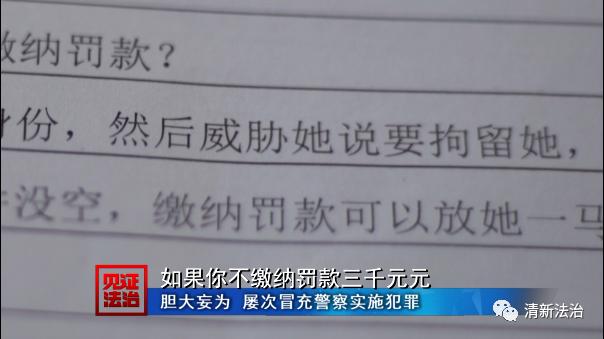 缴纳罚款？
身份，然后威胁她说要拘留她，
没空，缴纳罚款可以放她一马
如果你不缴纳罚款三千元元
见证
法治
胆大妄为 屡次冒充警察实施犯罪
清新法治